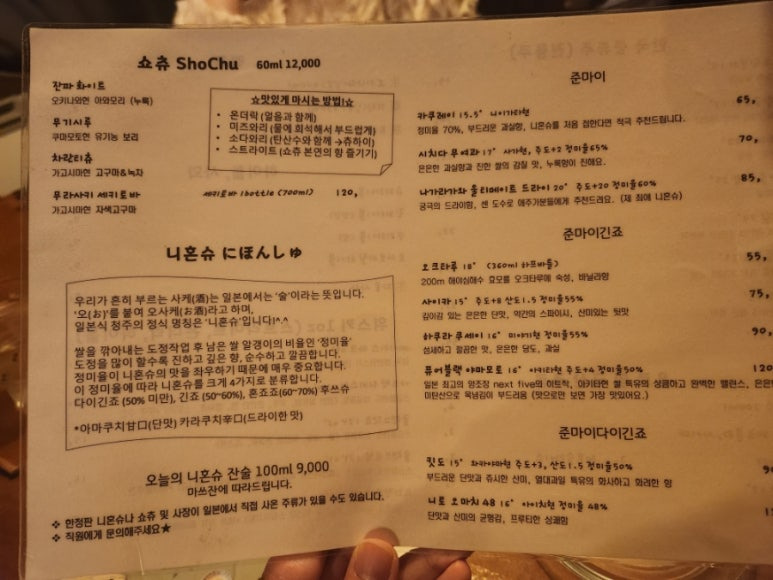 쇼츄 ShoChu 60ml 12,000
잔파 화이트
오키나와현 아와모리 (누룩)
무기시루
쿠마모토현 유기농 보리
차란티츄
가고시마현 고구마&녹차
무라사키 세키토바 세키토바 1bottle (700ml) 120,
가고시마현 자색고구마
☆맛있게 마시는 방법!☆
• 온더락 (얼음과 함께)
• 미즈와리 (물에 희석해서 부드럽게)
• 소다와리 (탄산수와 함께 →츄하이)
• 스트라이트 (쇼츄 본연의 향 즐기기)
니혼슈 にほんしゅ
우리가 흔히 부르는 사케(酒)는 일본에서는 '술'이라는 뜻입니다.
'오(お)'를 붙여 오사케(お酒)라고 하며,
일본식 정주의 정식 명칭은 '니혼슈'입니다!^.^
쌀을 깎아내는 도정작업 후 남은 쌀 알갱이의 비율인 '정미율'
도정을 많이 할수록 진하고 깊은 향, 순수하고 깔끔합니다.
정미율이 니혼슈의 맛을 좌우하기 때문에 매우 중요합니다.
이 정미율에 따라 니혼슈를 크게 4가지로 분류합니다.
다이긴죠 (50% 미만), 긴죠 (50~60%), 혼죠죠(60~70%) 후쯔슈
*아마쿠치甘口(단맛) 카라쿠치辛口(드라이한 맛)
오늘의 니혼슈 잔술 100ml 9,000
마쓰잔에 따라드립니다.
❖ 한정판 니혼슈나 쇼츄 및 사장이 일본에서 직접 사온 주류가 있을 수도 있습니다.
❖ 직원에게 문의해주세요★
준마이
카쿠레이 15.5° 니이가타현 65,
정미율 70%, 부드러운 과실향, 니혼슈를 처음 접한다면 적극 추천드립니다.
시치다 무여과 17° 사가현, 주도+2 정미율65% 70,
은은한 과실향과 진한 쌀의 감칠 맛, 누룩향이 진해요.
나가라가와 울티메이트 드라이 20° 주도+20 정미율60% 85,
궁극의 드라이함, 센 도수로 애주가분들에게 추천드려요. (제 최애 니혼슈)
준마이긴죠
오크타루 18° (360ml 하프바틀) 55,
200m 해야심해수 효모를 오크타루에 숙성, 바닐라향
사이카 15° 주도+8 산도1.5 정미율55% 75,
깊이감 있는 은은한 단맛, 약간의 스파이시, 산미있는 뒷맛
하쿠라쿠세이 16° 미야기현 정미율55% 90,
섬세하고 깔끔한 맛, 은은한 당도, 과실
퓨어블랙 야마모토 16° 아키타현 주도+4 정미율50% 120
일본 최고의 양조장 next five의 히트작, 아키타현 쌀 특유의 상큼하고 완벽한 밸런스, 은은한
미탄산으로 목넘김이 부드러움 (맛으로만 보면 가장 맛있어요.)
준마이다이긴죠
킷도 15° 와카야마현 주도+3, 산도1.5 정미율50%
부드러운 단맛과 쥬시한 산미, 열대과일 특유의 화사하고 화려한 향
니토 오마치 48 16° 아이치현 정미율 48%
단맛과 산미의 균형감, 프루티한 상쾌함